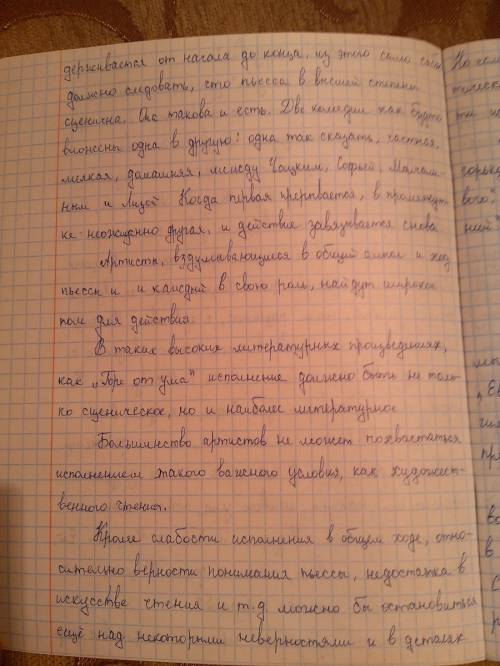 держивается от начала до конца, из этого само собой
должно следовать, что пьесса в высшей степени
сценична. Она такова и есть. Две комедии как будто
вложены одна в другую: одна так сказать, частная,
мелкая, домашняя, между Чацким, Софьей, Молчали-
ным и Лизой. Когда первая прерывается, в промежут-
ке неожиданно другая, и действие завязывается снова
Артисты, вздумывающиеся в общий смысл и ход
пьессы и и каждый в свою роль, найдут широкое
поле для действия.
В таких высоких литературных произведениях,
как „Горе от ума" исполнение должно быть не толь-
ко сценическое, но и наиболее литературное
Большинство артистов не может похвастаться
исполнением такого важного условия, как художест-
венного чтения.
Кроме слабости исполнения в общем ходе, отно-
сительно верности понимания пьессы, недостатка в
искусстве чтения и т.д. можно бы остановиться
ещё над некоторыми неверностями и в деталях